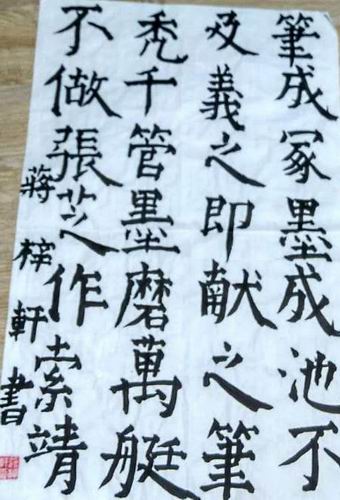 筆成冢墨成池不
及義之即献之筆
禿千管墨磨萬艇
不做張芝作索靖
蔣梓軒書